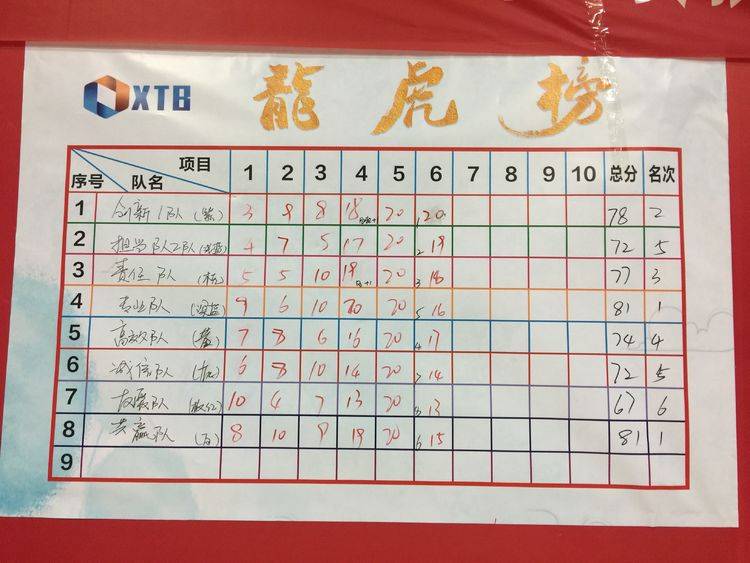 XTB
龍虎榜
项目 序号 队名 1 2 3 4 5 6 7 8 9 10 总分 名次
1 创新1队 (紫) 3 9 8 18 20 1 20 78 2
2 担当队2队 4 7 5 17 20 2 19 72 5
3 责任队 5 5 10 19 20 3 18 77 3
4 专业队 (深蓝) 9 6 10 20 20 5 16 81 1
5 高效队 7 8 6 16 20 4 17 74 4
6 诚信队 6 8 10 14 20 7 14 72 5
7 友爱队 10 4 7 13 20 8 13 67 6
8 共赢队 8 10 9 19 20 6 15 81 1
9